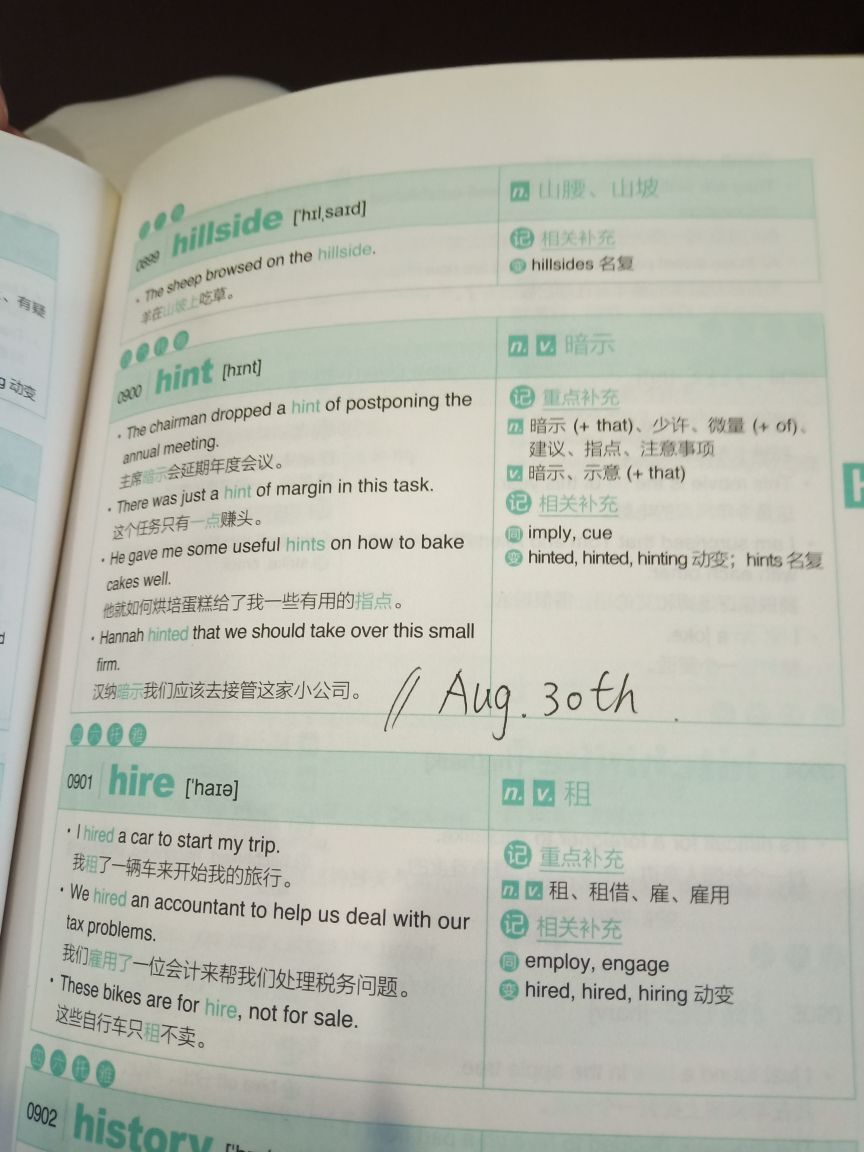 、有疑
动变
0899 hillside ['hɪlˌsaɪd]
n. 山腰、山坡
· The sheep browsed on the hillside.
羊在山坡上吃草。
记 相关补充
变 hillsides 名复
0900 hint [hɪnt]
n. v. 暗示
· The chairman dropped a hint of postponing the
annual meeting.
主席暗示会延期年度会议。
· There was just a hint of margin in this task.
这个任务只有一点赚头。
· He gave me some useful hints on how to bake
cakes well.
他就如何烘培蛋糕给了我一些有用的指点。
· Hannah hinted that we should take over this small
firm.
汉纳暗示我们应该去接管这家小公司。
记 重点补充
n. 暗示 (+ that)、少许、微量 (+ of)、
建议、指点、注意事项
v. 暗示、示意 (+ that)
记 相关补充
同 imply, cue
变 hinted, hinted, hinting 动变；hints 名复
H
// Aug. 30th
四六托雅
0901 hire ['haɪə]
n. v. 租
· I hired a car to start my trip.
我租了一辆车来开始我的旅行。
· We hired an accountant to help us deal with our
tax problems.
我们雇用了一位会计来帮我们处理税务问题。
· These bikes are for hire, not for sale.
这些自行车只租不卖。
记 重点补充
n. v. 租、租借、雇、雇用
记 相关补充
同 employ, engage
变 hired, hired, hiring 动变
四六托雅
0902 history